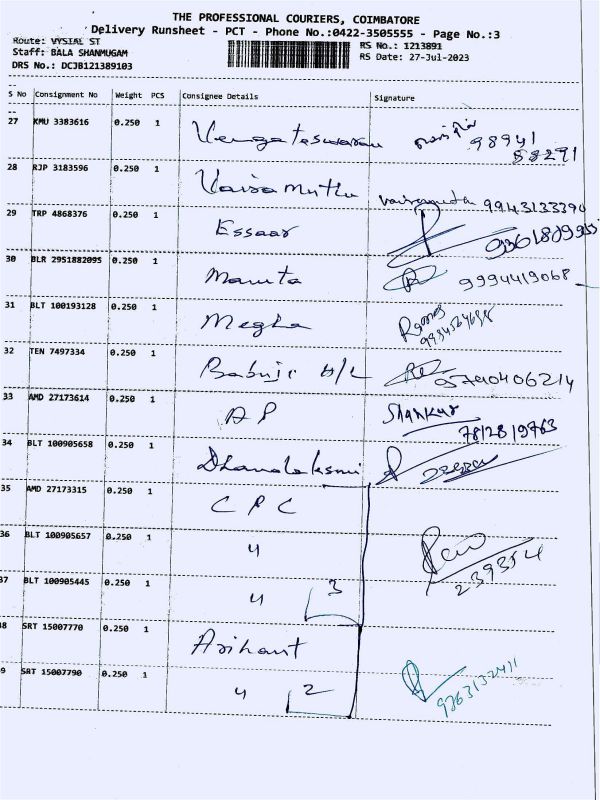 THE PROFESSIONAL COURIERS, COIMBATORE
Delivery Runsheet - PCT - Phone No.:0422-3505555 - Page No.:3
Route: VYSIAL ST RS No.: 1213891
Staff: BALA SHANMUGAM RS Date: 27-Jul-2023
DRS No.: DCJB121389103
S No Consignment No Weight PCS Consignee Details Signature
27 KMU 3383616 0.250 1 Vengateswaran 98941
58291
28 RJP 3183596 0.250 1 Vairamuthu 9943133390
29 TRP 4868376 0.250 1 Essaar
30 BLR 2951882095 0.250 1 Maruta 9994419068
31 BLT 100193128 0.250 1 Megha
32 TEN 7497334 0.250 1 Babuji H/L
33 AMD 27173614 0.250 1 A P Shankar
7812819763
34 BLT 100905658 0.250 1 Dhanalaksmi
35 AMD 27173315 0.250 1 C P C
36 BLT 100905657 0.250 1 4
239354
37 BLT 100905445 0.250 1 4 3
38 SRT 15007770 0.250 1 Arihant
39 SRT 15007790 0.250 1 4 2 9363132411